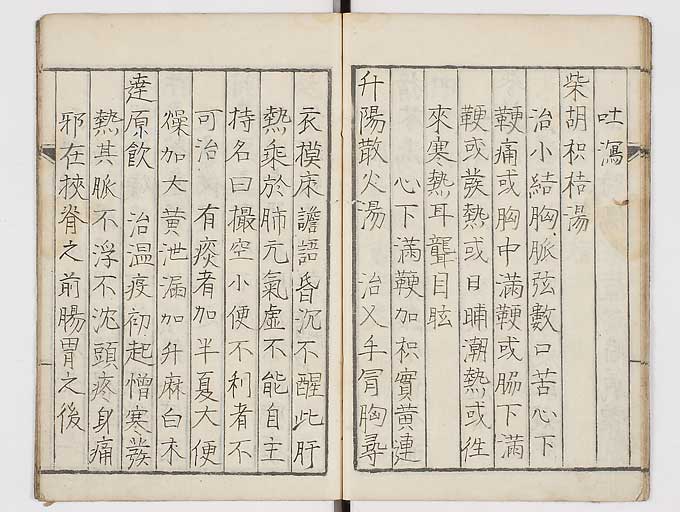 吐瀉
柴胡枳桔湯
治小結胸脈弦數口苦心下
鞕痛或胸中滿鞕或脇下滿
鞕或發熱或日晡潮熱或徃
來寒熱耳聾目眩
心下滿鞕加枳實黃連
升陽散火湯　治叉手冐胸尋
衣模床譫語昏沉不醒此肝
熱乘於肺元氣虛不能自主
持名曰撮空小便不利者不
可治　有痰者加半夏大便
燥加大黃泄漏加升麻白木
達原飲　治温疫初起憎寒發
熱其脈不浮不沈頭疼身痛
邪在挾脊之前腸胃之後